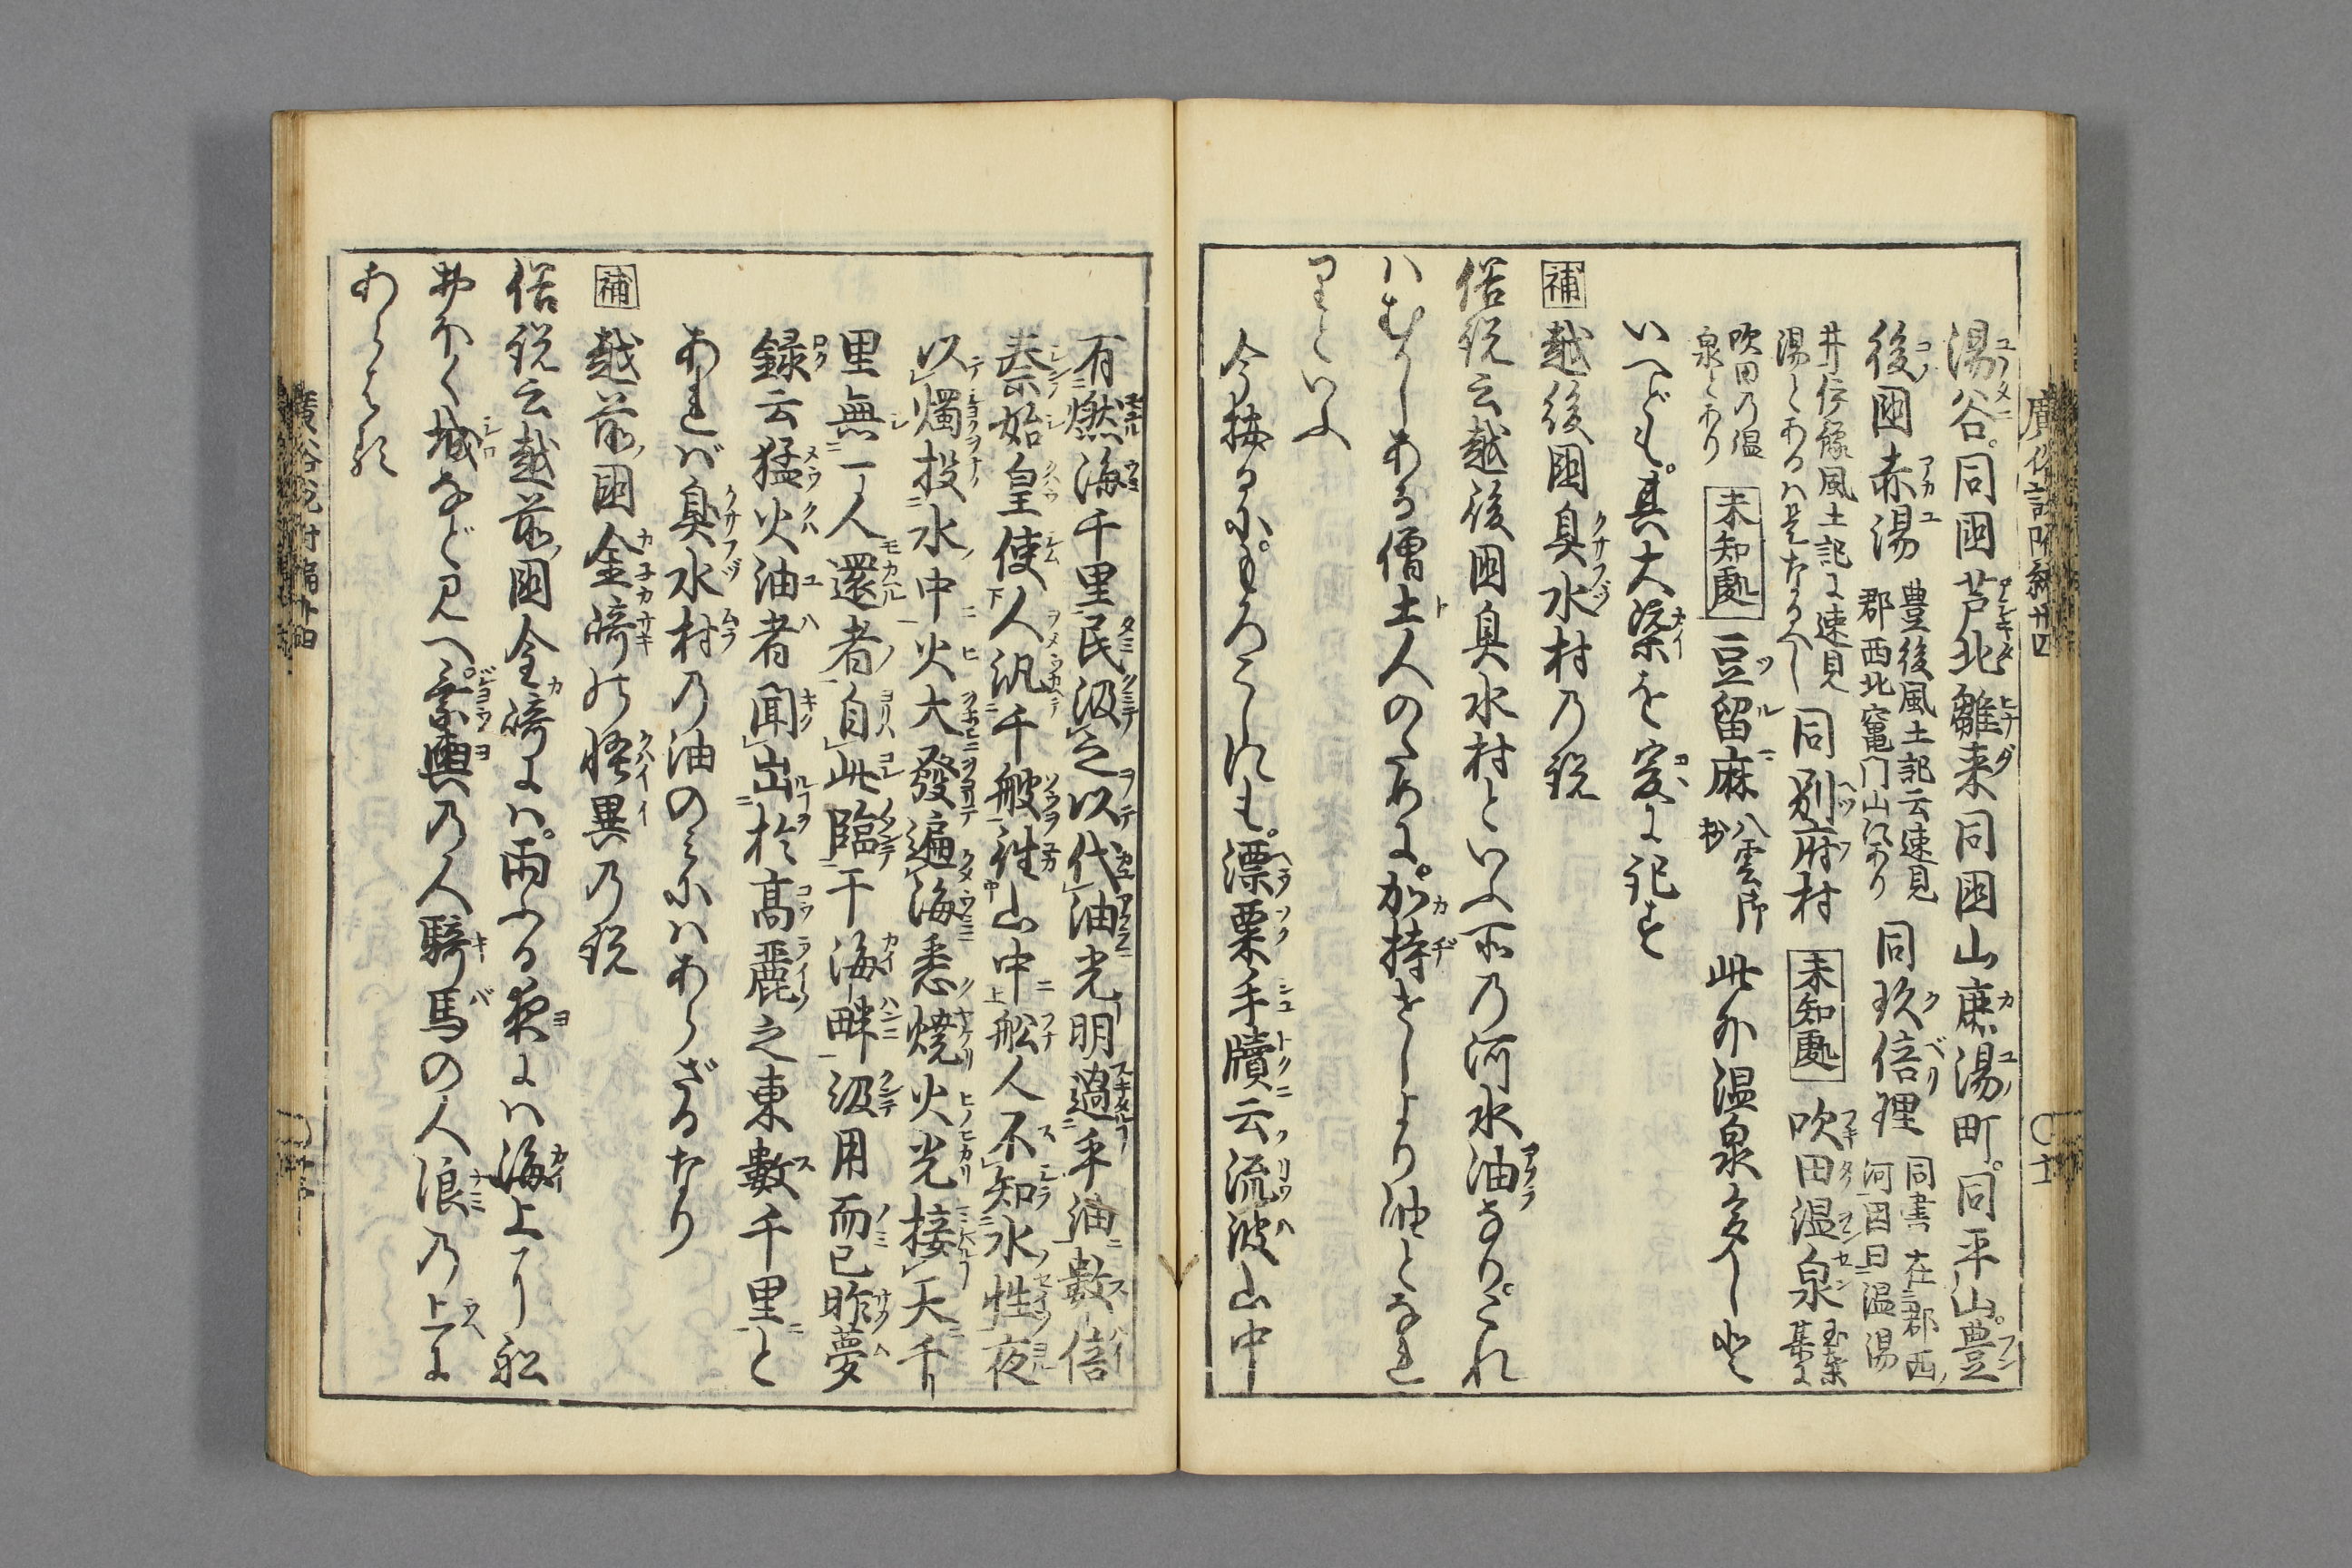 湯谷。同國芦北雛来同國山鹿湯町。同平山。豊
後國赤湯 豊後風土記云速見郡西北竈門山にあり 同玖倍理 同書在郡西河因曰温湯
井伊豫風土記に速見湯とあるハ是なるべし 同別府村 未知處 吹田温泉
吹田乃温泉とあり 未知處 豆留麻 八雲御抄 此外温泉多しと
いへども。其大槩を爰に記す
補 越後國臭水村乃説
俗説云越後國臭水村といふ所乃河水油なり。これ
ハむかしある僧土人のために。加持せしより油となれ
りといふ
今按るに。もろこしにも。漂粟手牘云流波山中
有燃海千里民汲之以代油光明過乎油數倍
秦始皇使人汎千艘往山中舩人不知水性夜
以燭投水中火大發遍海悉燒火光接天千
里無一人還者自此臨于海畔汲用而已昨夢
録云猛火油者聞出於高麗之東數千里と
あれバ臭水村乃油のミにハあらざるなり
補 越前國金﨑の怪異乃説
俗説云越前國金﨑にハ。雨ふる夜にハ海上より舩
城など見へ。乗輿乃人騎馬の人浪乃上に
あらはる
廣俗説附編廿四